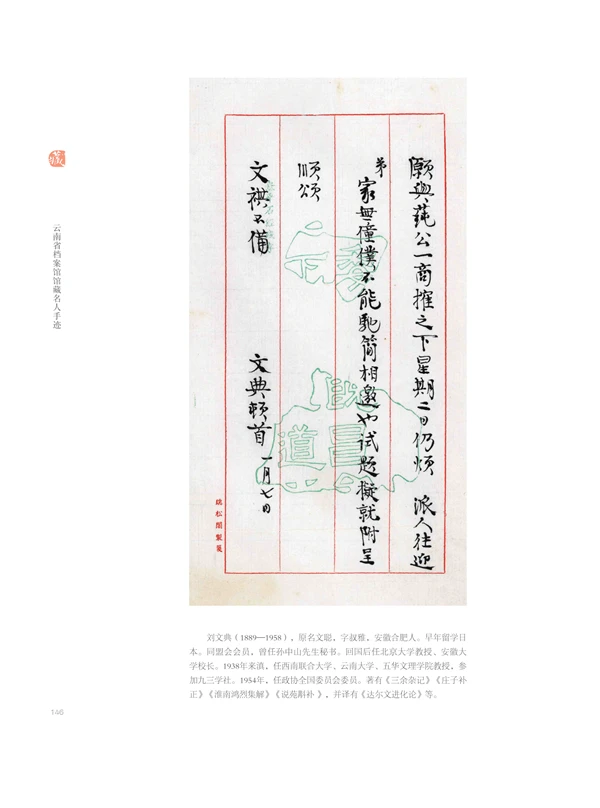 藏
云南省档案馆馆藏名人手迹
愿与莼公一商搉之下星期二日仍烦 派人往迎
弟家无僮仆不能驰简相邀也试题拟就附呈
顺颂
文祺不备 文典顿首 一月七日
姚松阁制笺
刘文典（1889—1958），原名文聪，字叔雅，安徽合肥人。早年留学日
本。同盟会会员，曾任孙中山先生秘书。回国后任北京大学教授、安徽大
学校长。1938年来滇，任西南联合大学、云南大学、五华文理学院教授，参
加九三学社。1954年，任政协全国委员会委员。著有《三余杂记》《庄子补
正》《淮南鸿烈集解》《说苑斠补 》，并译有《达尔文进化论》等。
146